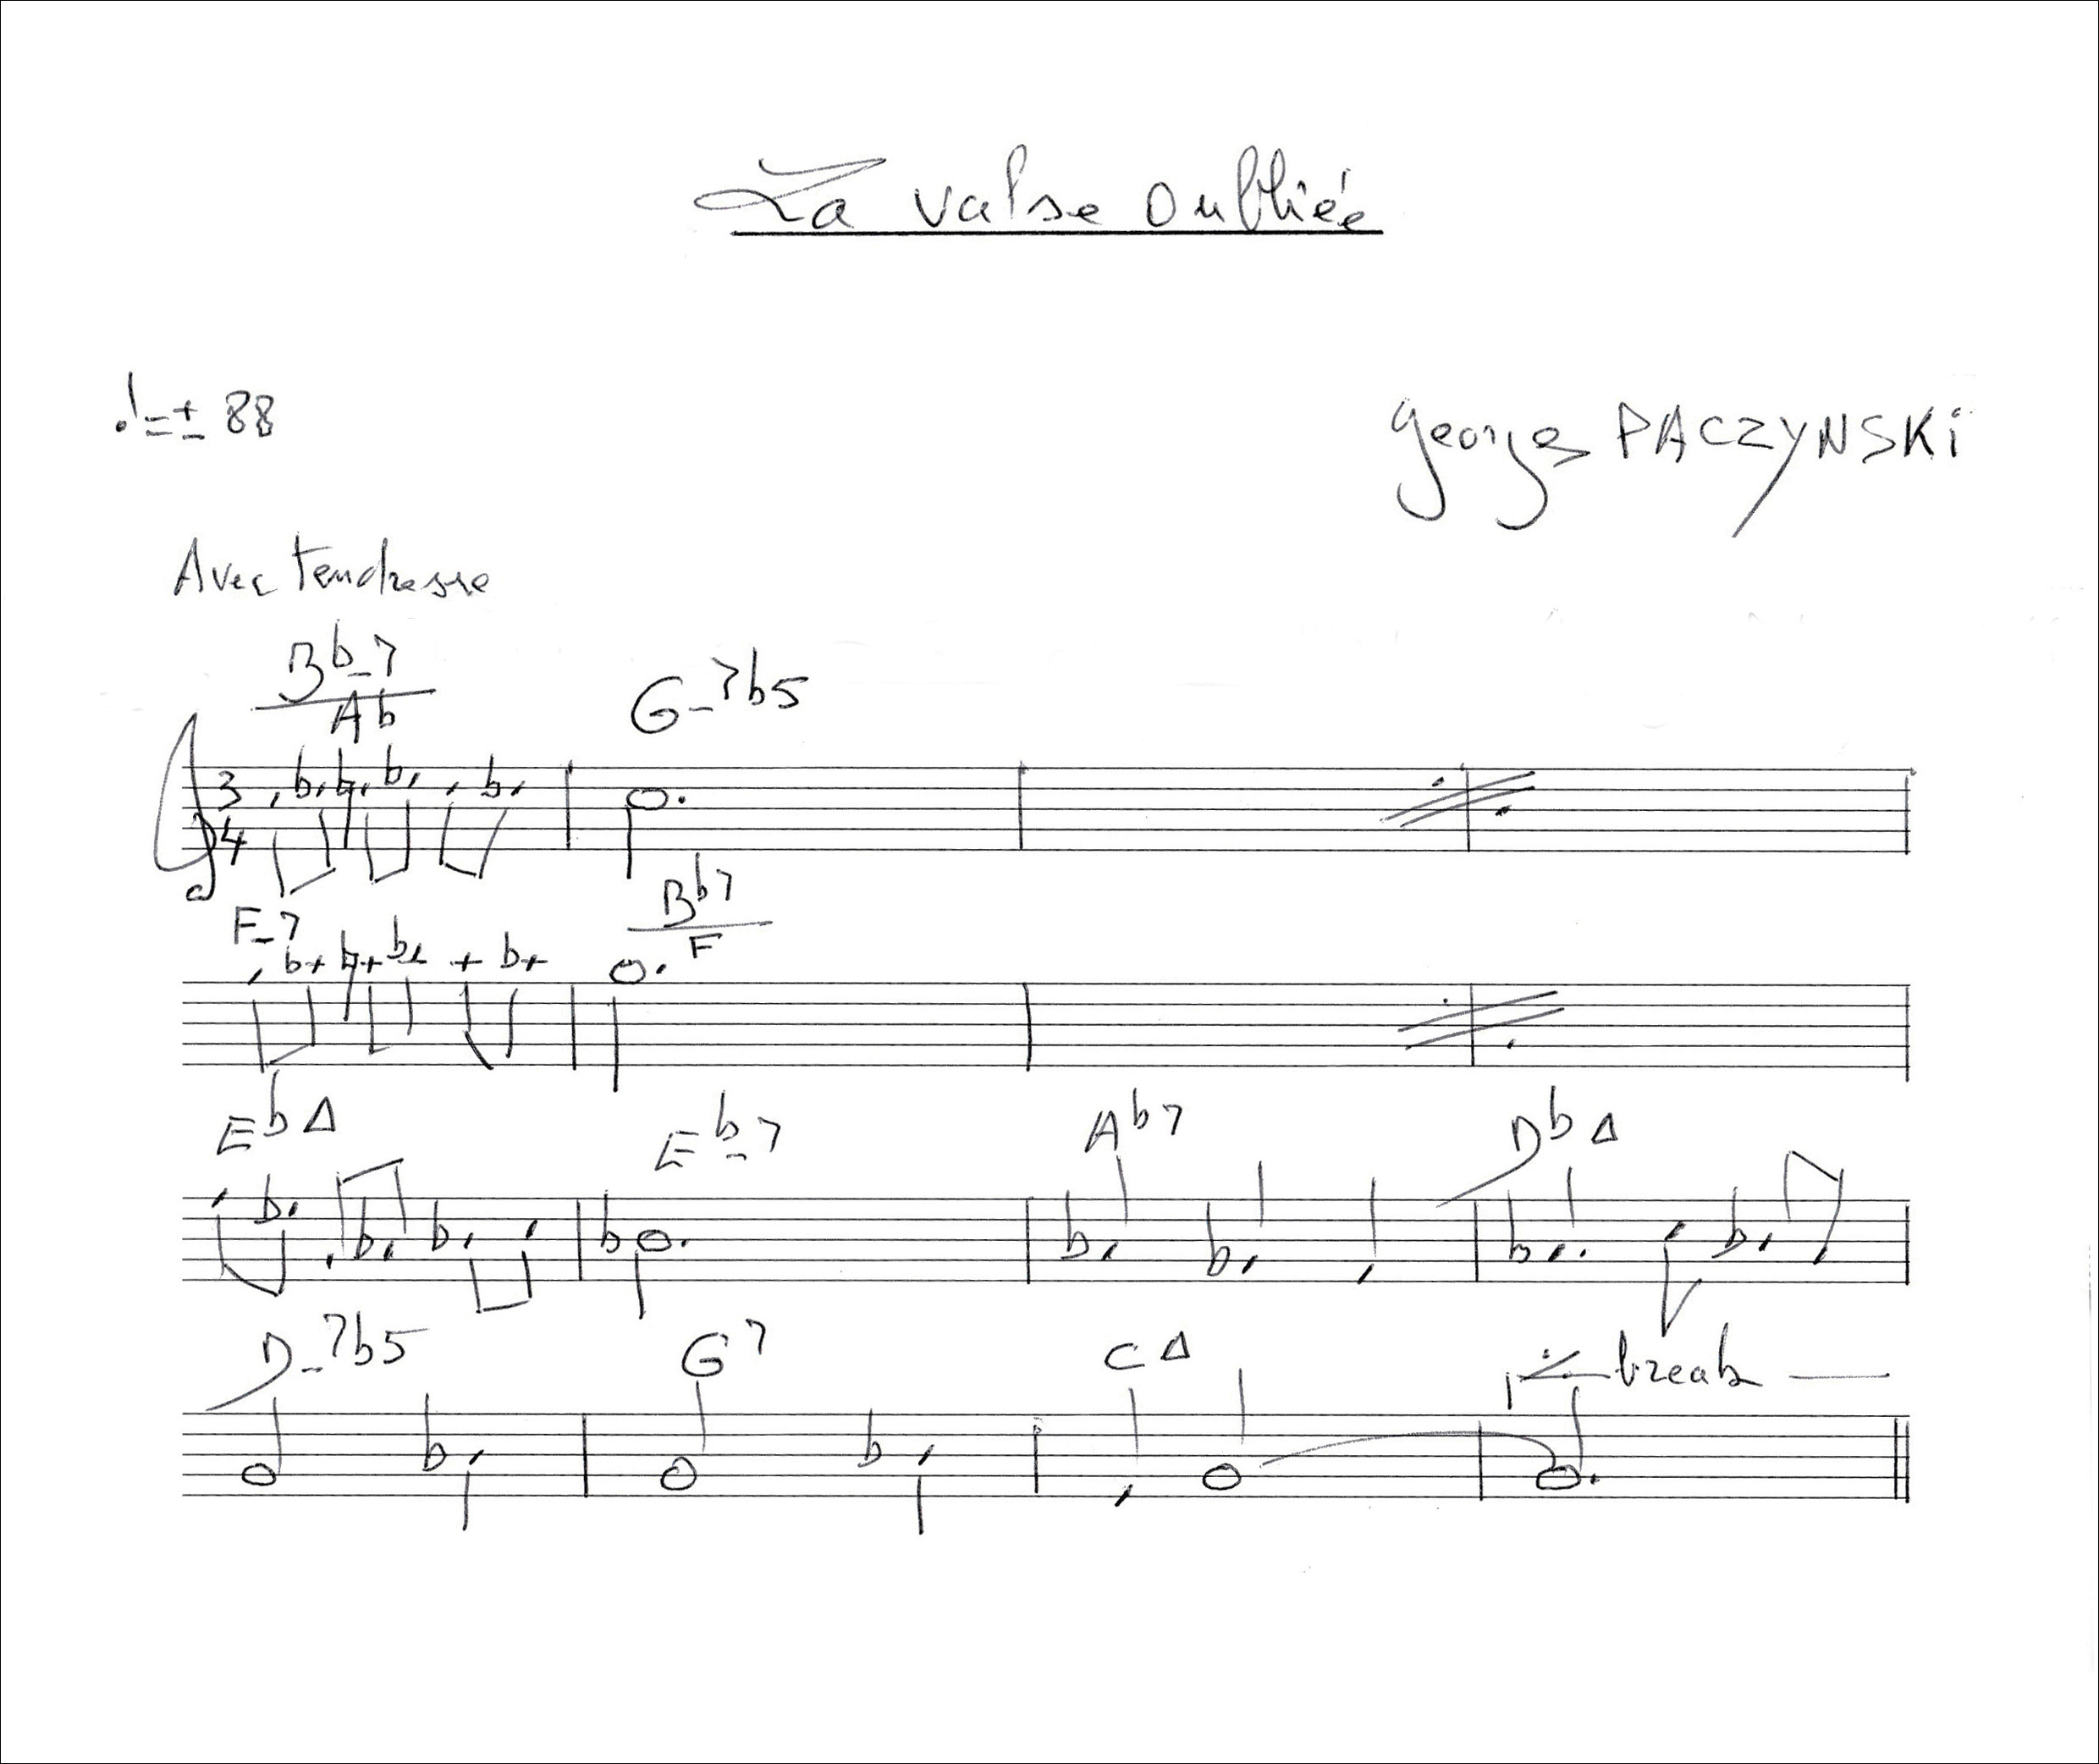 La valse oubliée
♩=± 88
georges PACZYNSKi
Avec tendresse
Bb-7
Ab
G-7b5
3
4
F-7
Bb7
F
EbΔ Eb-7 Ab7 DbΔ
D-7b5 G7 CΔ break